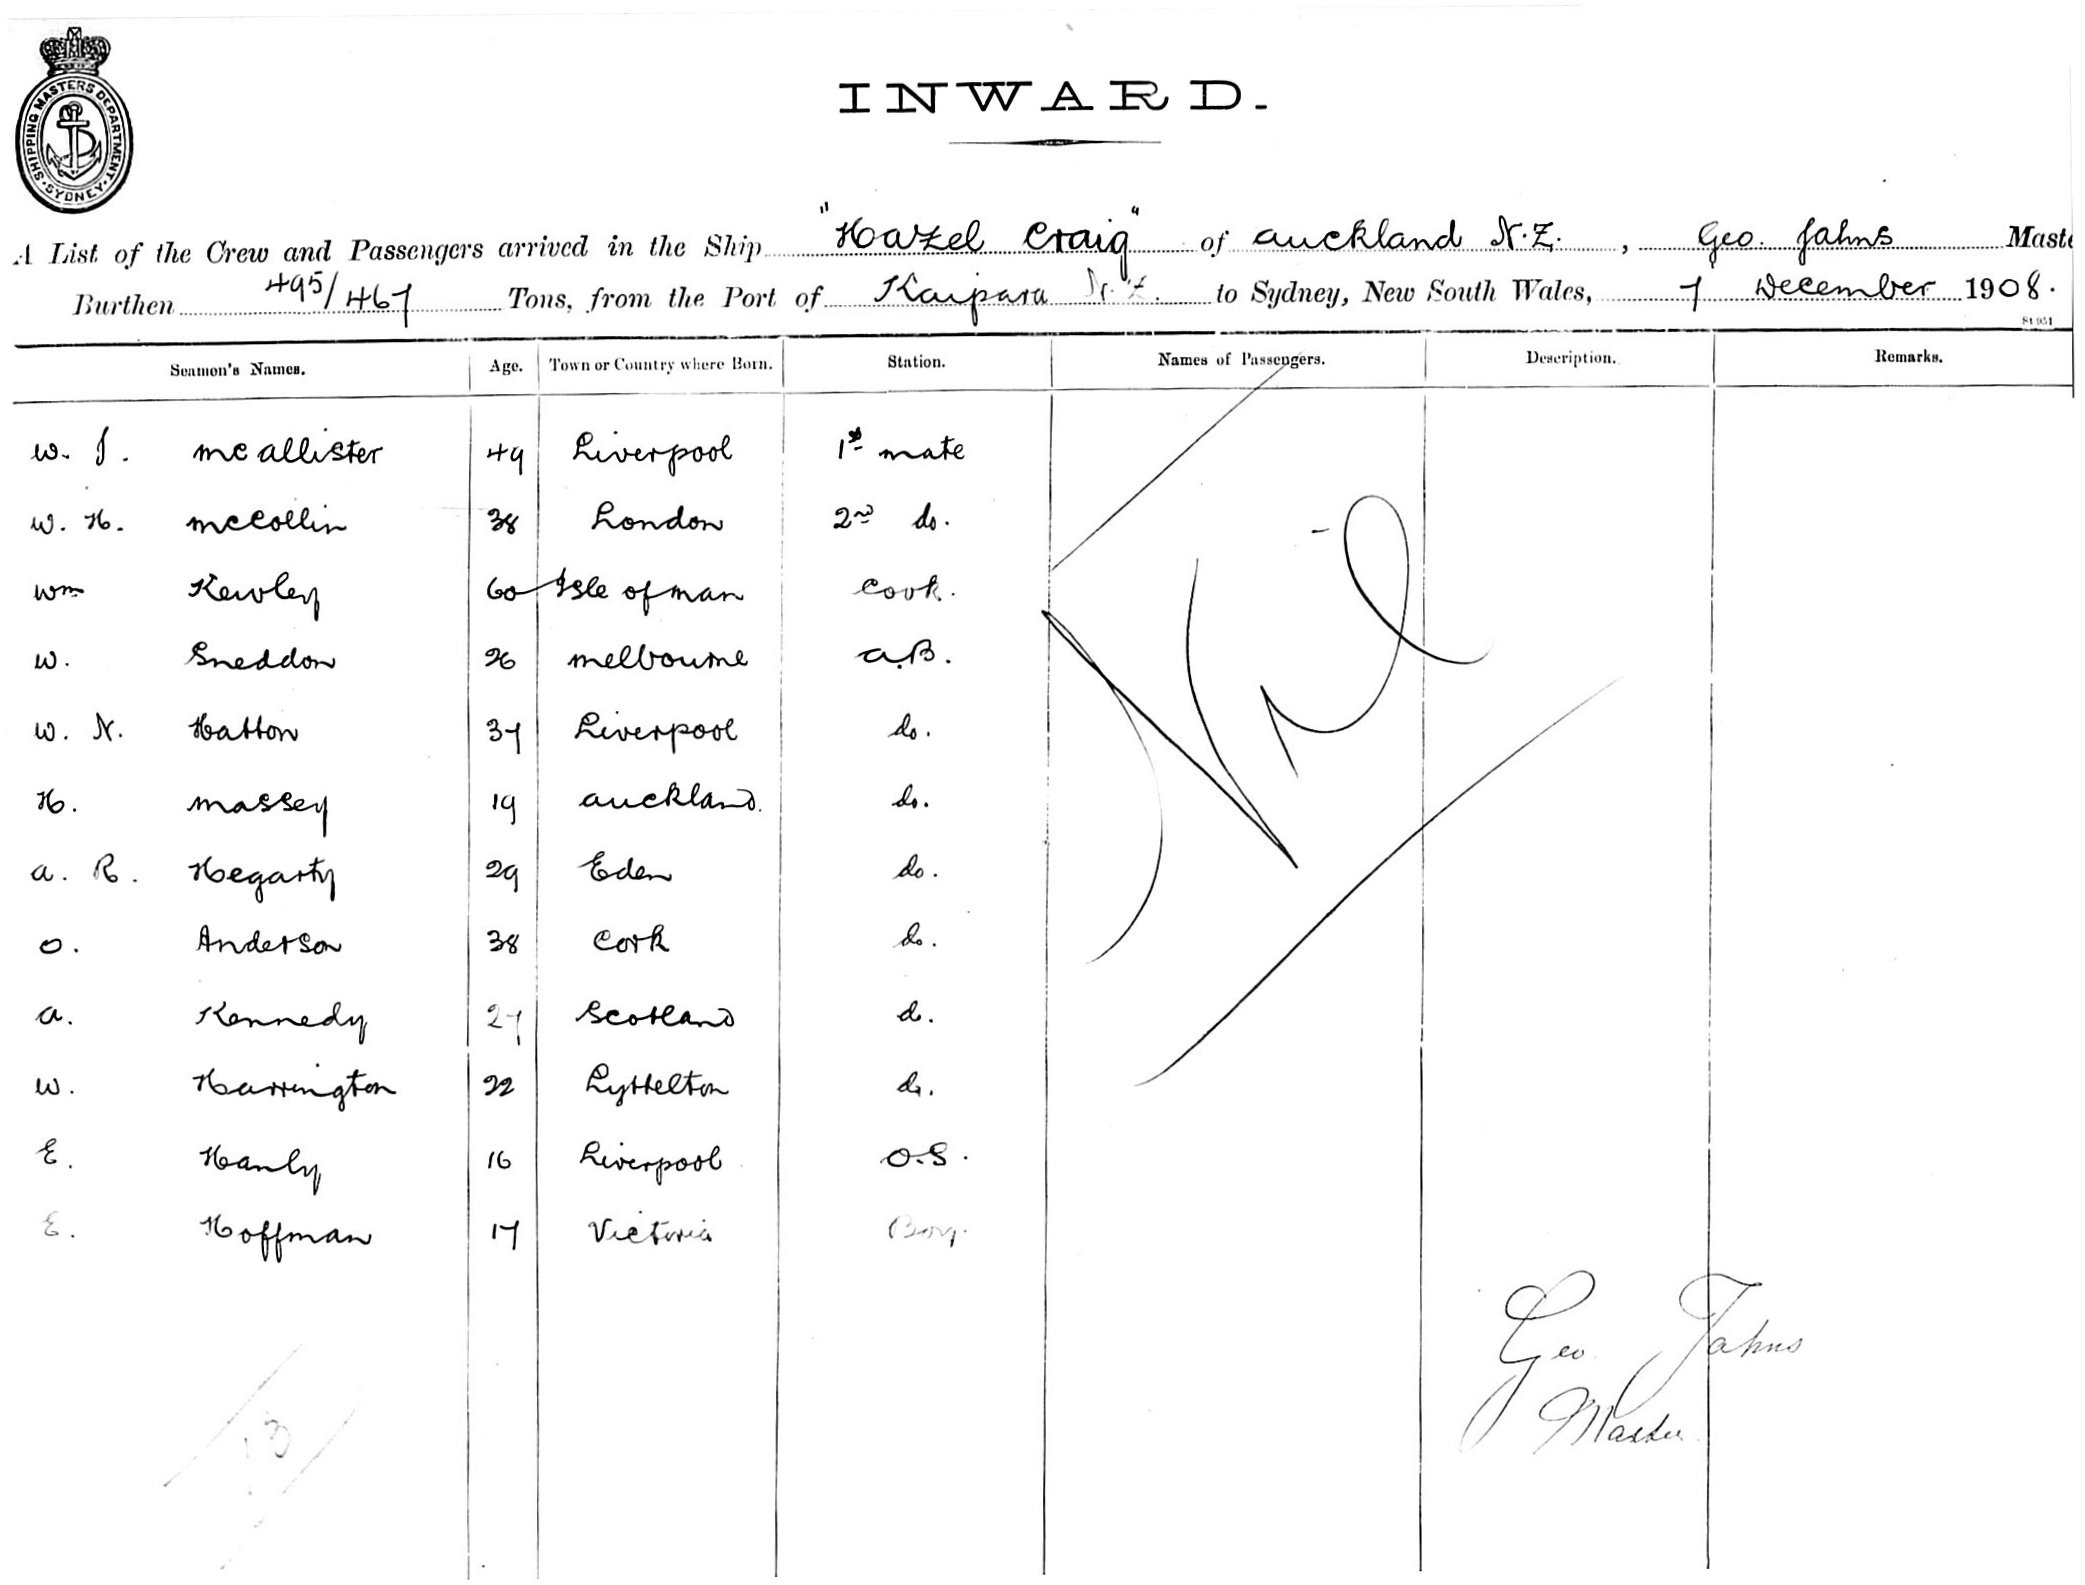 SHIPPING MASTERS DEPARTMENT · SYDNEY ·
INWARD.
A List of the Crew and Passengers arrived in the Ship "Hazel Craig" of Auckland N.Z. , Geo. Jahns Maste
Burthen 495/467 Tons, from the Port of Kaipara N.Z. to Sydney, New South Wales, 7 December 1908.
St 951
Seamen's Names. Age. Town or Country where Born. Station. Names of Passengers. Description. Remarks.
W. J. McAllister 49 Liverpool 1st mate
W. H. McCollin 38 London 2nd do.
Wm Kewley 60 Isle of man Cook.
W. Sneddon 26 Melbourne A.B.
W. N. Hatton 37 Liverpool do.
H. Massey 19 Auckland. do.
A. R. Hegarty 29 Eden do.
O. Anderson 38 Cork do.
A. Kennedy 27 Scotland do.
W. Harrington 22 Lyttelton do.
E. Hanly 16 Liverpool O.S.
E. Hoffman 17 Victoria Boy.
Nil
Geo. Jahns
Master
13